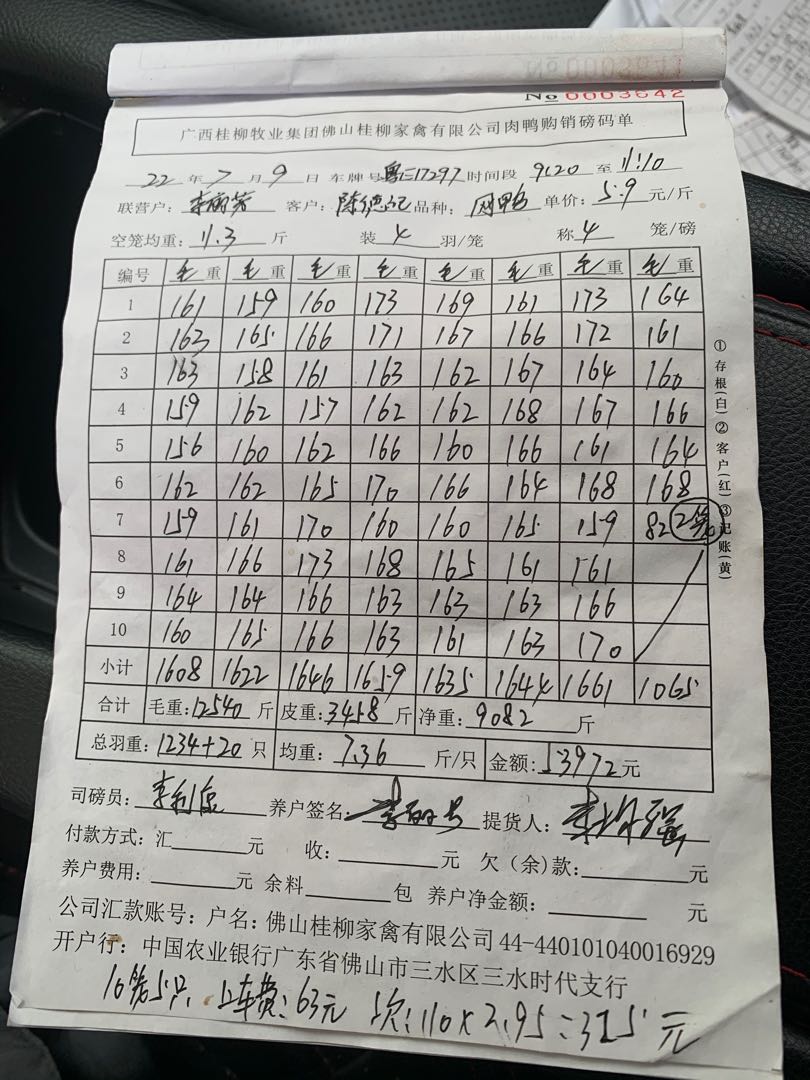 No 0003642
广西桂柳牧业集团佛山桂柳家禽有限公司肉鸭购销磅码单
22 年 7 月 9 日 车牌号 17297 时间段 9:20 至 11:10
联营户: 客户: 陈德记 品种: 单价: 5.9 元/斤
空笼均重: 11.3 斤 装 4 羽/笼 称 4 笼/磅
编号 毛重 毛重 毛重 毛重 毛重 毛重 毛重 毛重
1 161 159 160 173 169 161 173 164
2 163 165 166 171 167 166 172 161
3 163 158 161 163 162 167 164 160
4 159 162 157 162 162 168 167 166
5 156 160 162 166 160 166 161 164
6 162 162 165 170 166 164 168 168
7 159 161 170 160 160 165 159 82 2笼
8 161 166 173 168 165 161 161
9 164 164 166 163 163 163 166
10 160 165 166 163 161 163 170
小计 1608 1622 1646 1659 1635 1644 1661 1065
合计 毛重: 12540 斤 皮重: 3458 斤 净重: 9082 斤
总羽重: 1234+20 只 均重: 7.36 斤/只 金额: 53972 元
司磅员: 养户签名: 提货人:
付款方式: 汇 元 收: 元 欠(余)款: 元
养户费用: 元 余料 包 养户净金额: 元
公司汇款账号: 户名: 佛山桂柳家禽有限公司 44-440101040016929
开户行: 中国农业银行广东省佛山市三水区三水时代支行
10笼5只 上车费: 63元 次: 110×2.95=325元
①存根(白)②客户(红)③记账(黄)